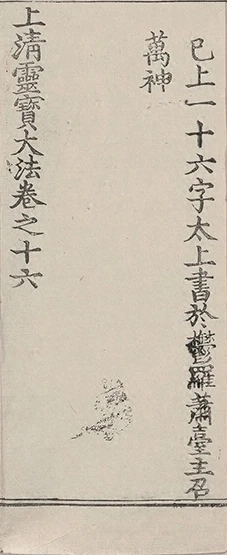 已上一十六字太上書於鬱羅蕭臺主召
萬神
上清靈寶大法卷之十六